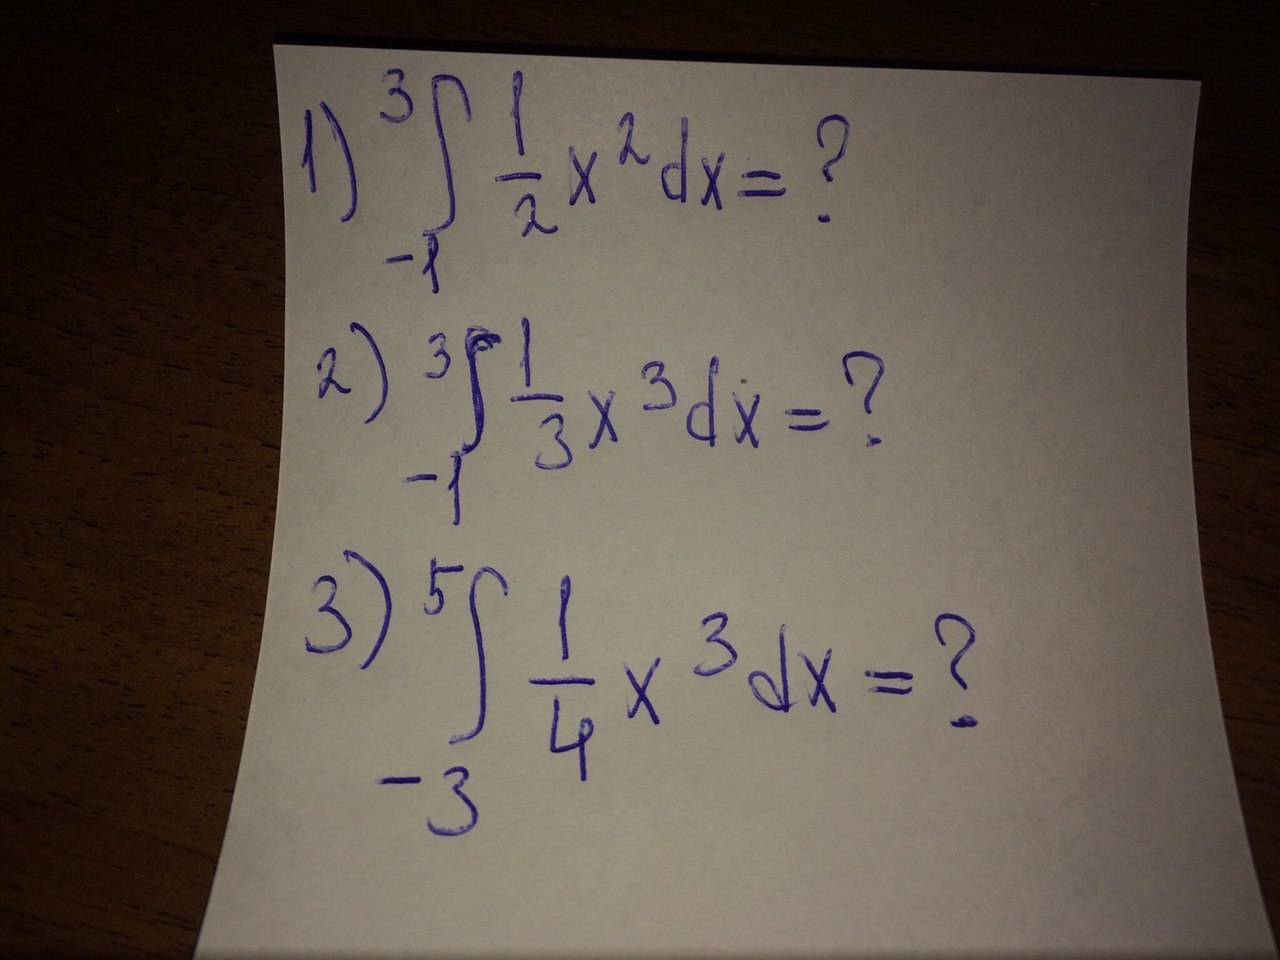 1) ∫₋₁³ 1/2 x² dx = ?
2) ∫₋₁³ 1/3 x³ dx = ?
3) ∫₋₃⁵ 1/4 x³ dx = ?